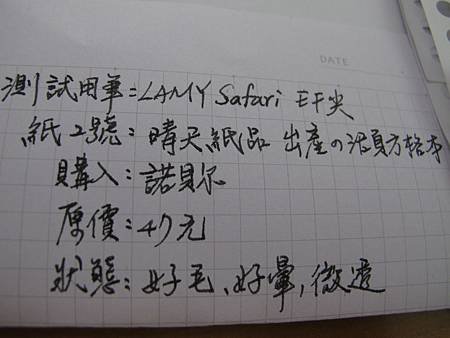 DATE
測試用筆:LAMY Safari EF尖
紙2號:晴天紙品 出產の活頁方格本
購入:諾貝尔
原價:47元
狀態:好毛、好暈,微透